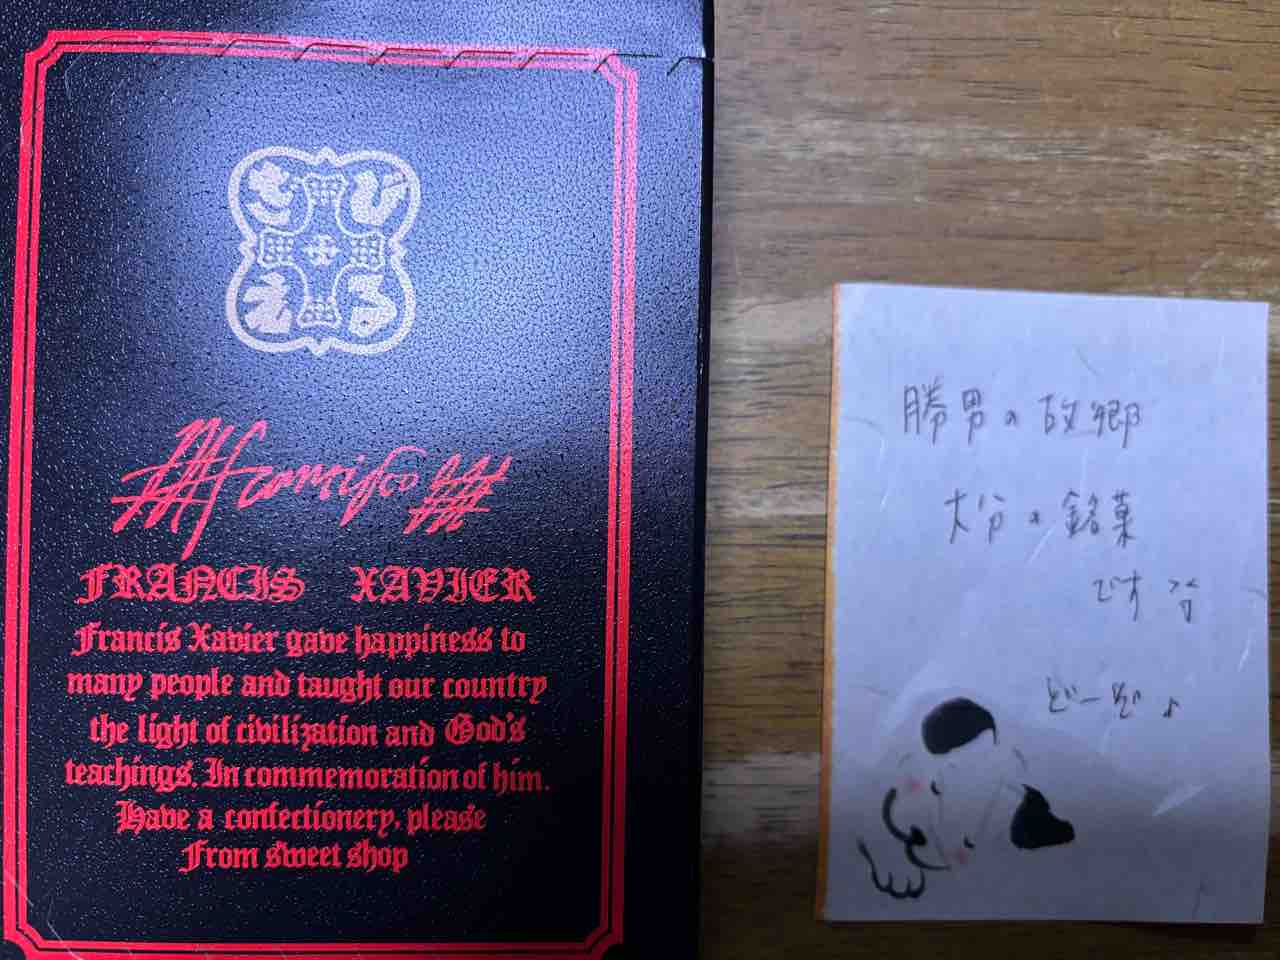 ざび
える
Francisco
FRANCIS XAVIER
Francis Xavier gave happiness to
many people and taught our country
the light of civilization and God's
teachings. In commemoration of him.
Have a confectionery, please
From sweet shop
勝男の故郷
大分の銘菓
です
どーぞ♪